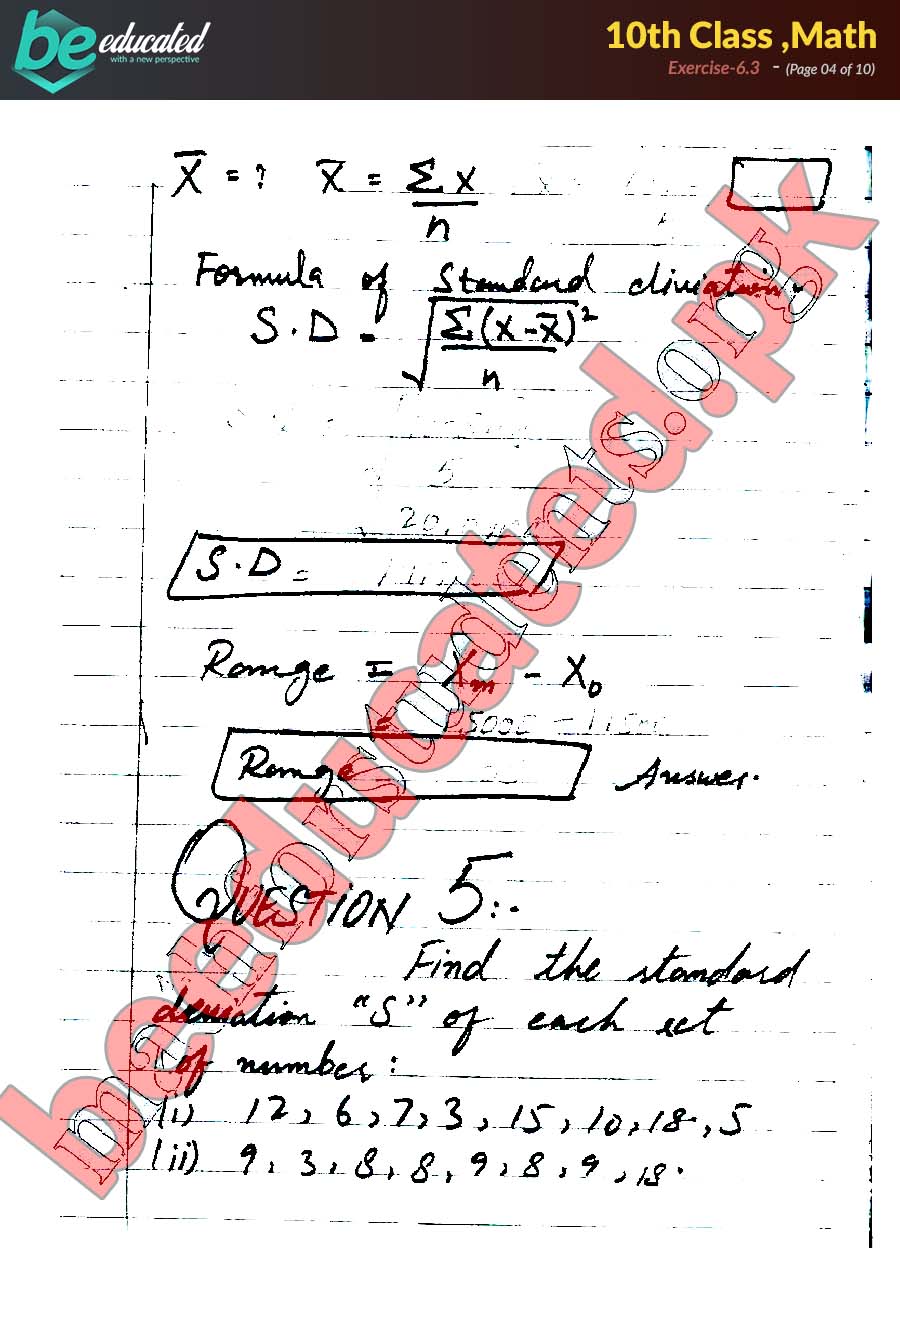 be educated
with a new perspective
10th Class ,Math
Exercise-6.3 - (Page 04 of 10)
X̄ = ? X̄ = Σx
n
Formula of Standard diviation.
S.D = √Σ(x-x̄)²
n
5
S.D =
Range = Xm - X0
Range Answer.
QUESTION 5:-
Find the standard
deviation "S" of each set
of number:
(i) 12, 6, 7, 3, 15, 10, 18, 5
(ii) 9, 3, 8, 8, 9, 8, 9, 18.
beeducated.pk